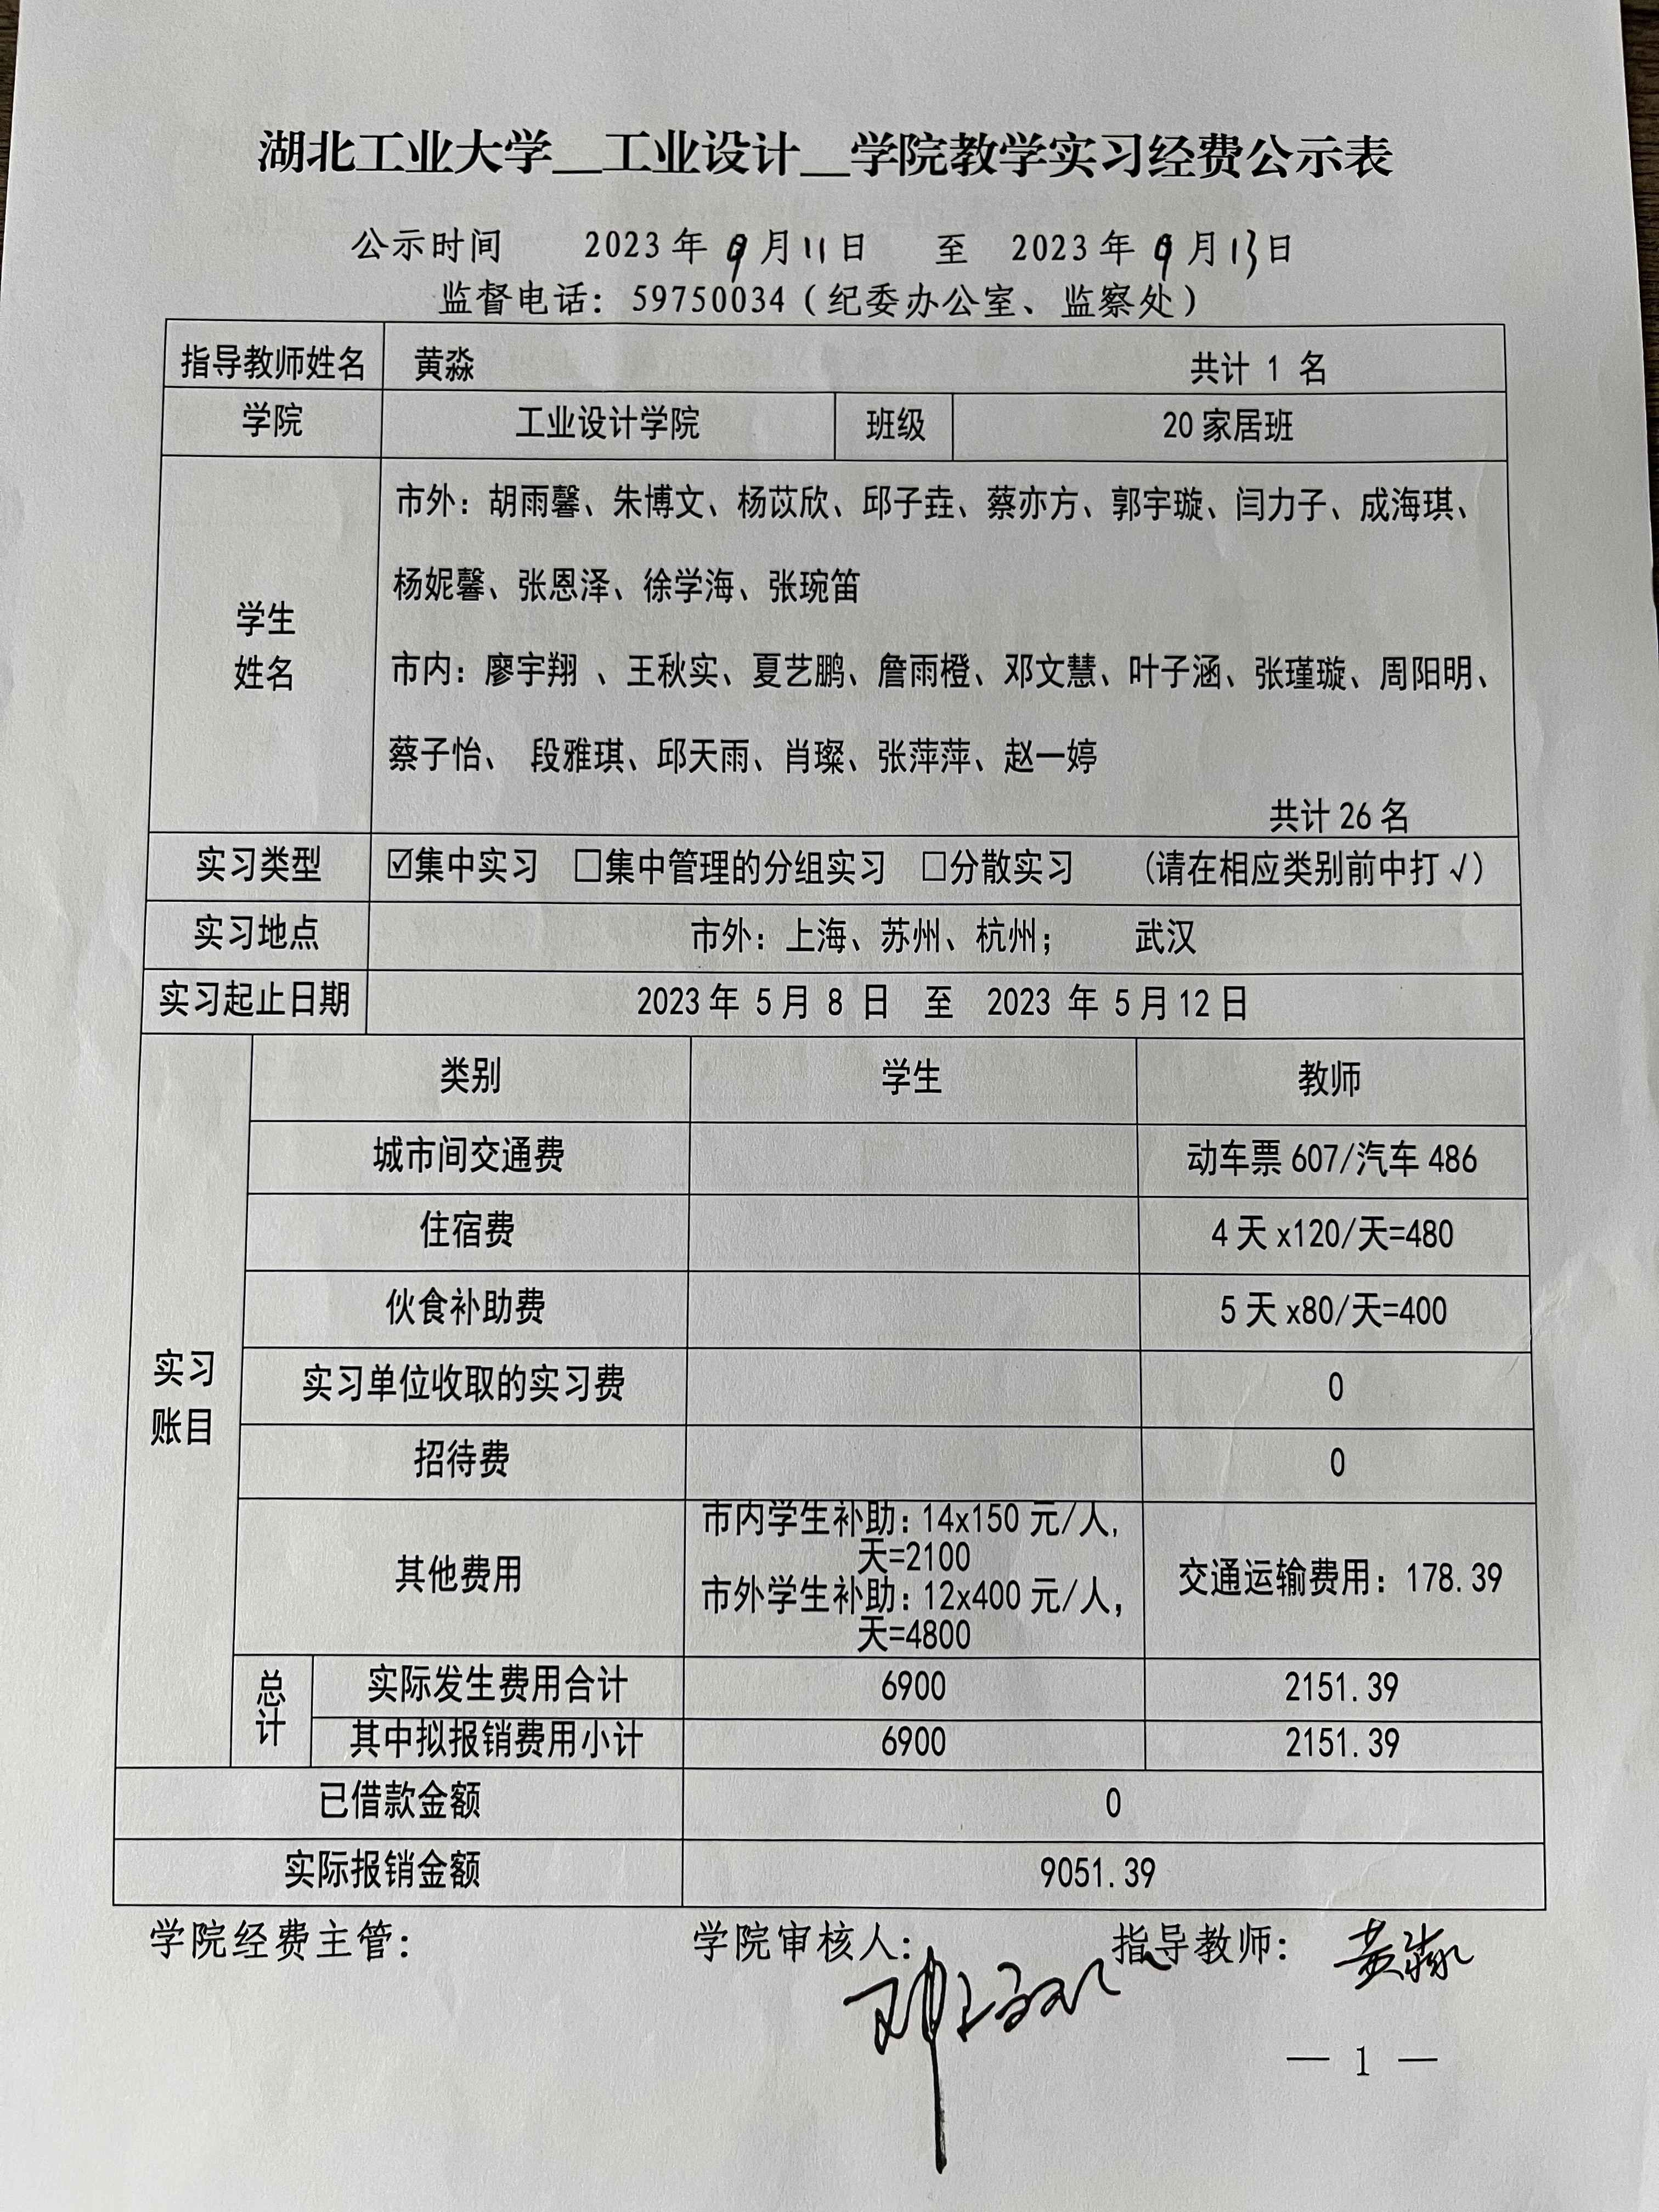 湖北工业大学__工业设计__学院教学实习经费公示表
公示时间 2023年9月11日 至 2023年9月13日
监督电话：59750034（纪委办公室、监察处）
指导教师姓名 黄淼 共计 1 名
学院 工业设计学院 班级 20家居班
市外：胡雨馨、朱博文、杨苡欣、邱子垚、蔡亦方、郭宇璇、闫力子、成海琪、
杨妮馨、张恩泽、徐学海、张琬笛
学生
姓名
市内：廖宇翔 、王秋实、夏艺鹏、詹雨橙、邓文慧、叶子涵、张瑾璇、周阳明、
蔡子怡、 段雅琪、邱天雨、肖璨、张萍萍、赵一婷
共计26名
实习类型 ☑集中实习 □集中管理的分组实习 □分散实习 （请在相应类别前中打√）
实习地点 市外：上海、苏州、杭州； 武汉
实习起止日期 2023年 5月 8 日 至 2023 年 5月12日
实习
账目
类别 学生 教师
城市间交通费 动车票607/汽车486
住宿费 4天x120/天=480
伙食补助费 5天x80/天=400
实习单位收取的实习费 0
招待费 0
其他费用
市内学生补助：14x150元/人,
天=2100
市外学生补助：12x400元/人，
天=4800
交通运输费用：178.39
总
计
实际发生费用合计 6900 2151.39
其中拟报销费用小计 6900 2151.39
已借款金额 0
实际报销金额 9051.39
学院经费主管： 学院审核人： 指导教师： 黄淼
— 1 —